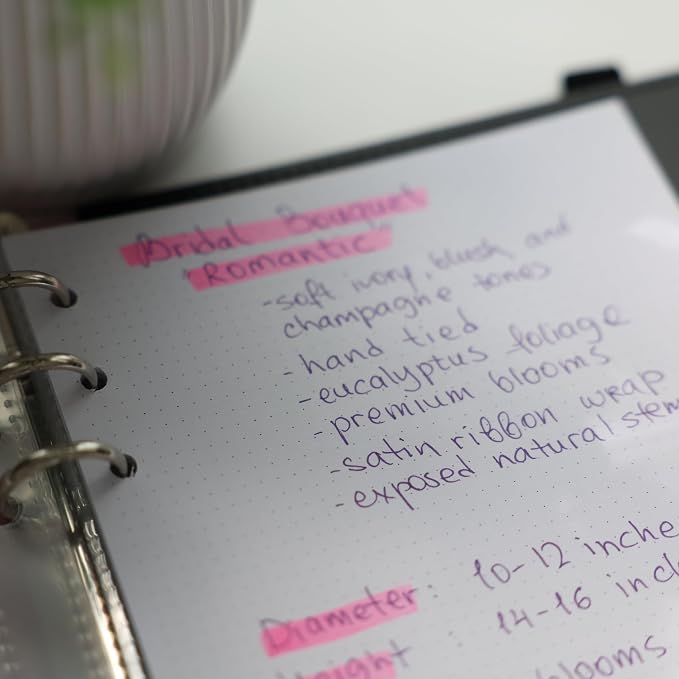 Bridal Bouquet
"Romantic"
-soft ivory, blush and
champagne tones
- hand tied
-eucalyptus foliage
-premium blooms
-satin ribbon wrap
-exposed natural stem
Diameter: 10-12 inche
Height : 14-16 incl
blooms